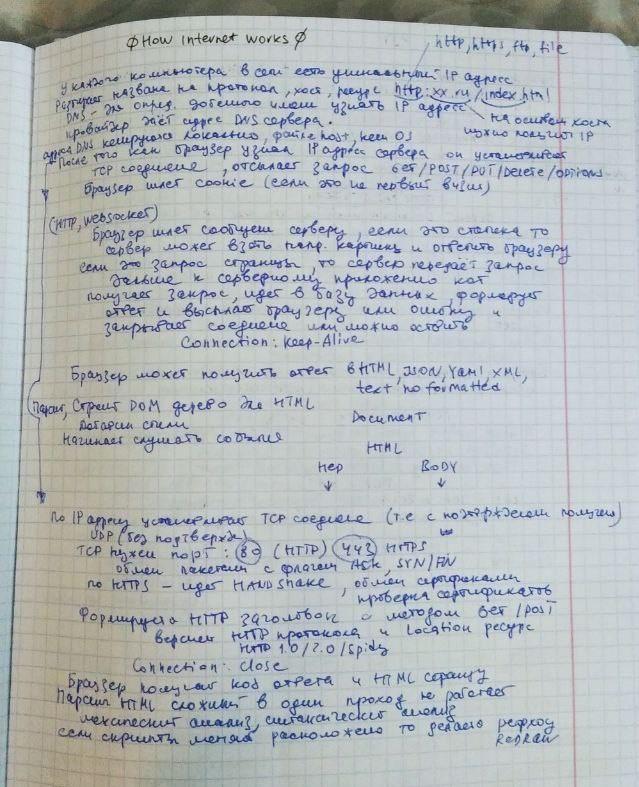 How Internet works
http, https, ftp, file
У каждого компьютера в сети есть уникальный IP адрес
названа на протокол, хост, ресурс http:xx.ru/index.html
DNS - для опред. доменного имени узнать IP адрес
на основании хоста
нужно получить IP
провайдер даёт адрес DNS сервера.
адреса DNS кешируются локально, файле host, кеш OS
После того как браузер узнал IP адрес сервера он устанавливает
TCP соединение, отсылает запрос GET/POST/PUT/Delete/OPTIONS
Браузер шлет cookie (если это не первый визит)
(HTTP, websocket)
Браузер шлет сообщен серверу, если это статика то
сервер может взять напр. картинку и ответить браузеру
если это запрос страницы, то сервер передаёт запрос
дальше к серверному приложению кот
получает запрос, идет в базу данных, формирует
ответ и высылает браузеру или ошибку и
закрывает соединение или можно оставить
Connection: Keep-Alive
Браузер может получить ответ в HTML, JSON, Yaml, XML,
text no formatted
Парсит, Строит DOM дерево для HTML
Document
стили
Начинает слушать события
HTML
Hep
BODY
По IP адресу устанавливает TCP соединение (т.е с получен)
UDP (без подтвержд)
TCP нужен порт: 80 (HTTP) 443 HTTPS
обмен пакетами с флагами ASK, SYN/FIN
по HTTPS - идет HANDSHAKE, обмен сертификатами
проверка сертификатов
Формируется HTTP заголовок с методом GET/POST
версией HTTP протокола и Location ресурс
HTTP 1.0/2.0/Spidy
Connection: close
Браузер получает код ответа и HTML страницу
Парсинг HTML сложный в один проход не работает
лексический анализ, синтаксический анализ
если скрипты меняют расположено то делаето рефлоу
Redraw